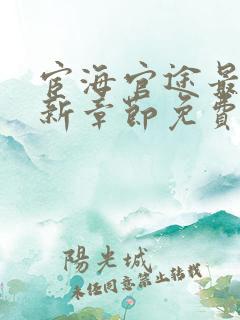 宦海官途最
新章節免費
陽光城
未经同意禁止转载